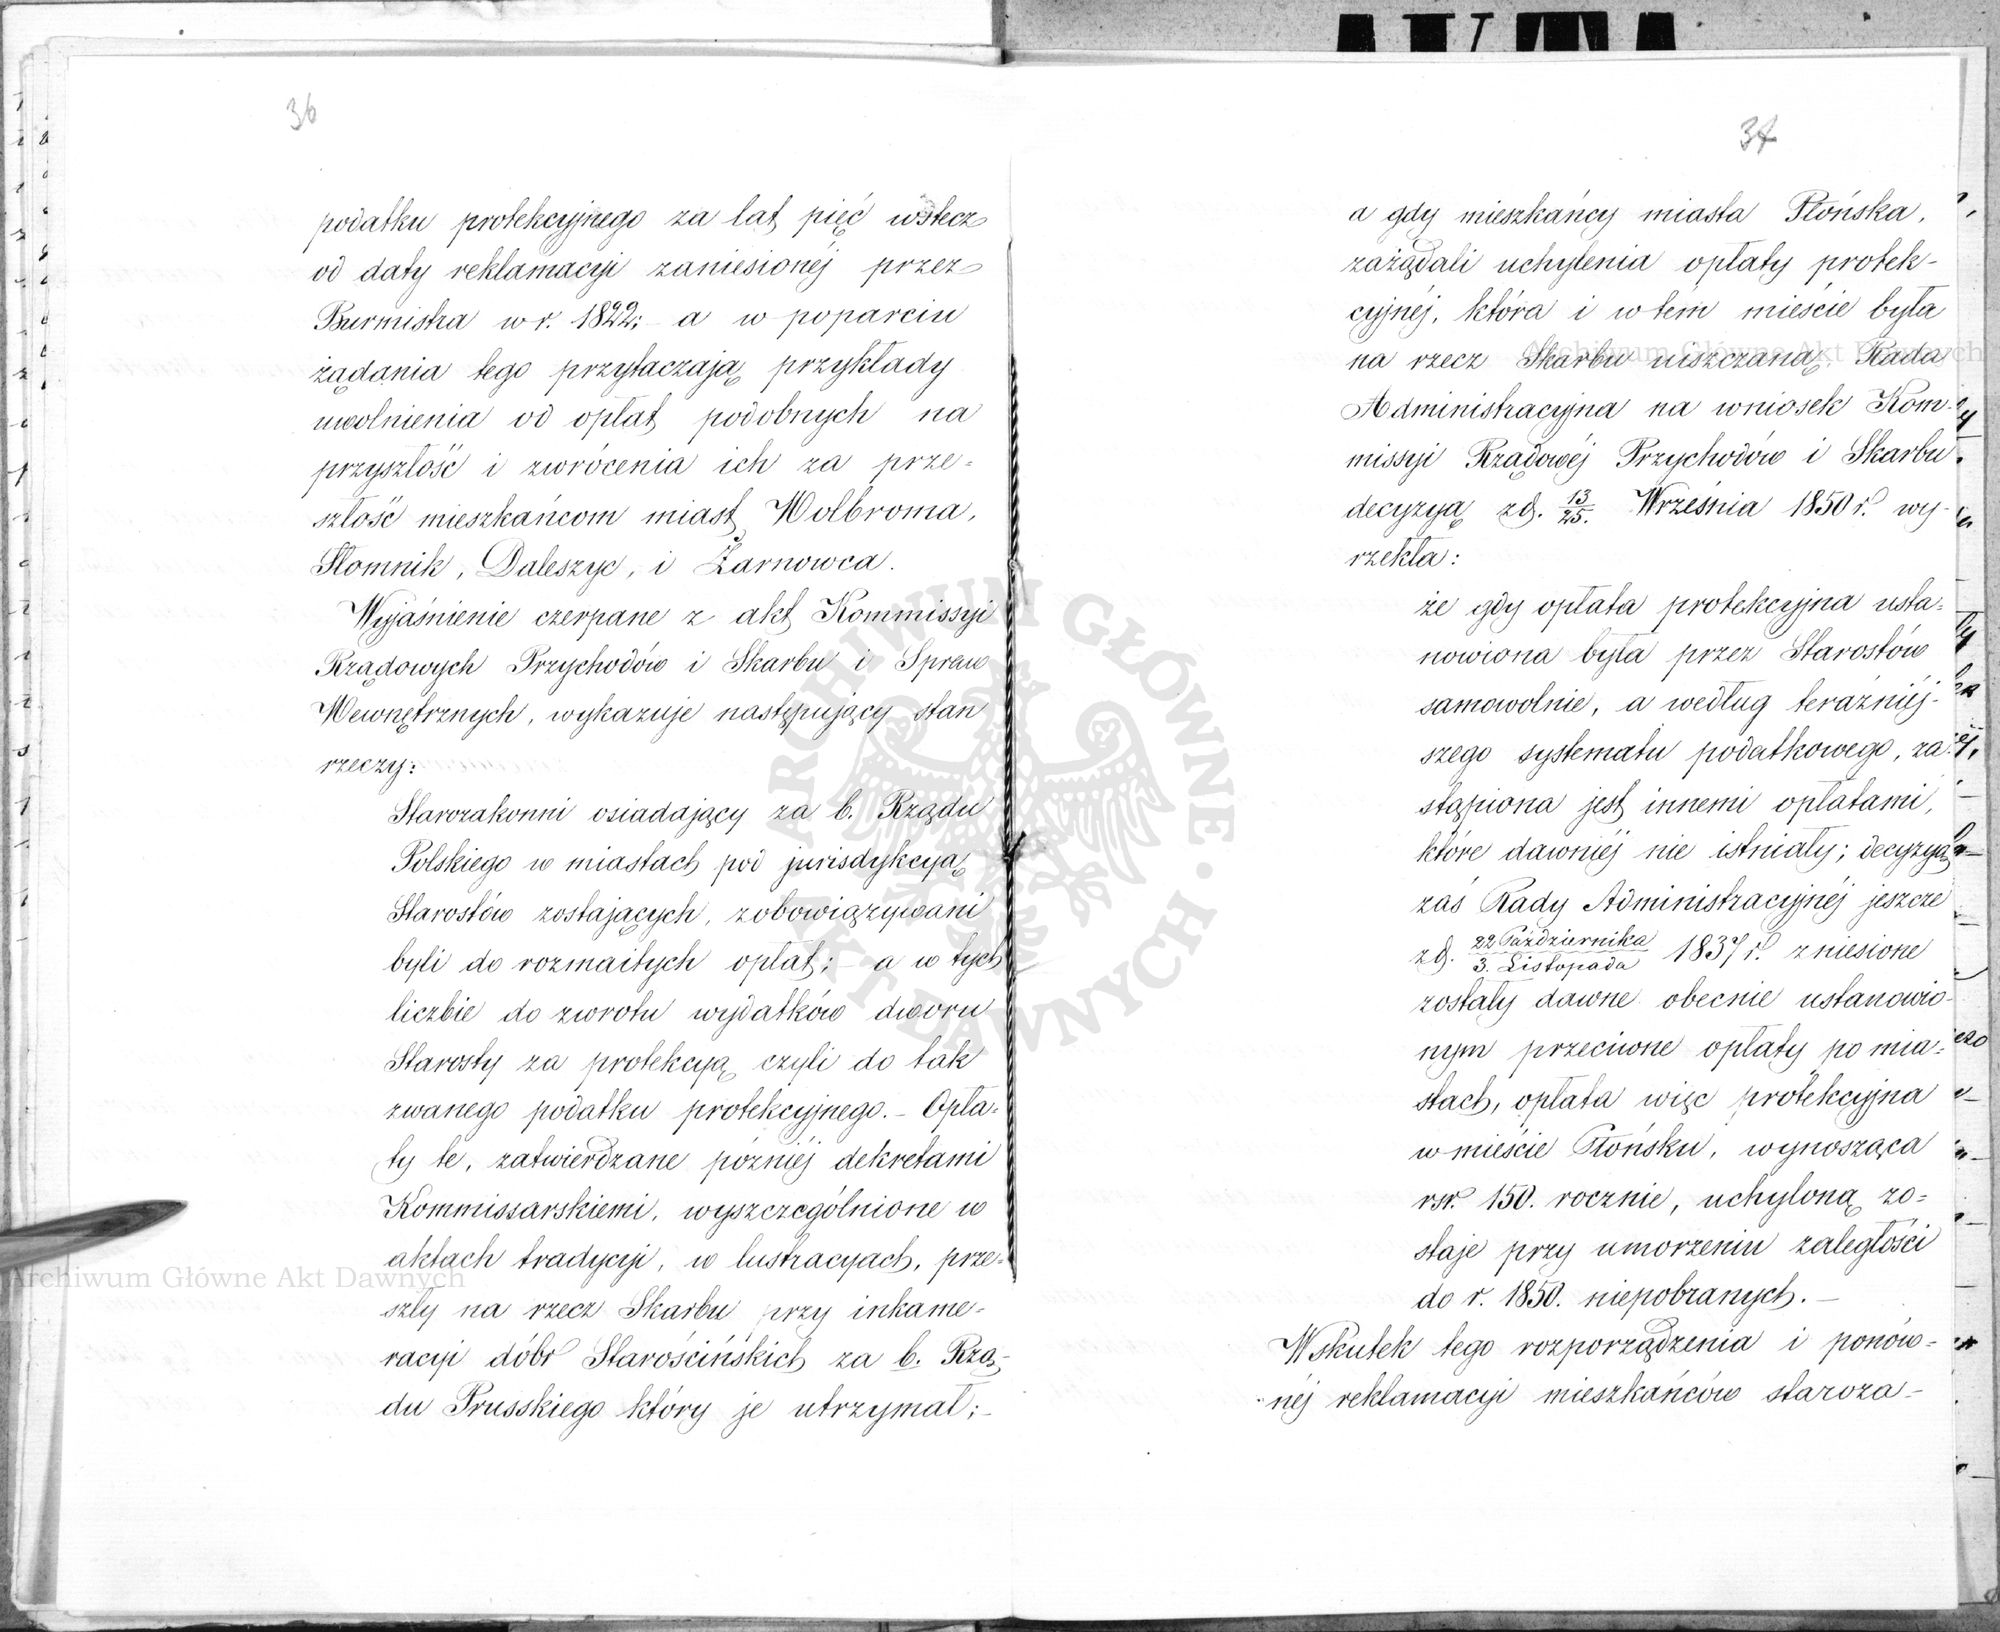 36
podatku protekcyjnego za lat pięć wstecz
od daty reklamacyi zaniesionéj przez
Burmistra w r. 1822; – a w poparciu
żądania tego przytaczają przykłady
uwolnienia od opłat podobnych na
przyszłość i zwrócenia ich za prze=
szłość mieszkańcom miast Wolbroma,
Słomnik, Daleszyc, i Żarnowca.
Wyjaśnienie czerpane z akt Kommissyi
Rządowych Przychodów i Skarbu i Spraw
Wewnętrznych, wykazuje następujący stan
rzeczy:
Starozakonni osiadający za b. Rządu
Polskiego w miastach pod jurisdykcyą
Starostów zostających, zobowiązywani
byli do rozmaitych opłat; – a w tych
liczbie do zwrotu wydatków dworu
Starosty za protekcyą czyli do tak
zwanego podatku protekcyjnego. – Opła=
ty te, zatwierdzane późniéj dekretami
Kommissarskiemi, wyszczególnione w
aktach tradycyi, w lustracyach, prze=
szły na rzecz Skarbu przy inkame-
racyi dóbr Starościńskich za b. Rzą-
du Prusskiego który je utrzymał; –
37
a gdy mieszkańcy miasta Płońska,
zażądali uchylenia opłaty protek-
cyjnéj, która i w tem mieście była
na rzecz Skarbu uiszczaną, Rada
Administracyjna na wniosek Kom-
missyi Rządowéj Przychodów i Skarbu
decyzyą z d. 13/25. Września 1850 r. wy-
rzekła:
że gdy opłata protekcyjna usta=
nowiona była przez Starostów
samowolnie, a według teraźniéj-
szego systematu podatkowego, za-
stąpiona jest innemi opłatami,
które dawniéj nie istniały; decyzyą
zaś Rady Administracyjnéj jeszcze
z d. 22 Października/3. Listopada 1837 r. zniesione
zostały dawne obecnie ustanowio-
nym przeciwne opłaty po mia=
stach, opłata więc protekcyjna
w mieście Płońsku, wynosząca
rsr. 150. rocznie, uchyloną zo=
staje przy umorzeniu zaległości
do r. 1850. niepobranych. –
Wskutek tego rozporządzenia i ponów-
néj reklamacyi mieszkańców staroza-
ARCHIWUM GŁÓWNE · AKT DAWNYCH ·
Archiwum Główne Akt Dawnych
Archiwum Główne Akt Dawnych